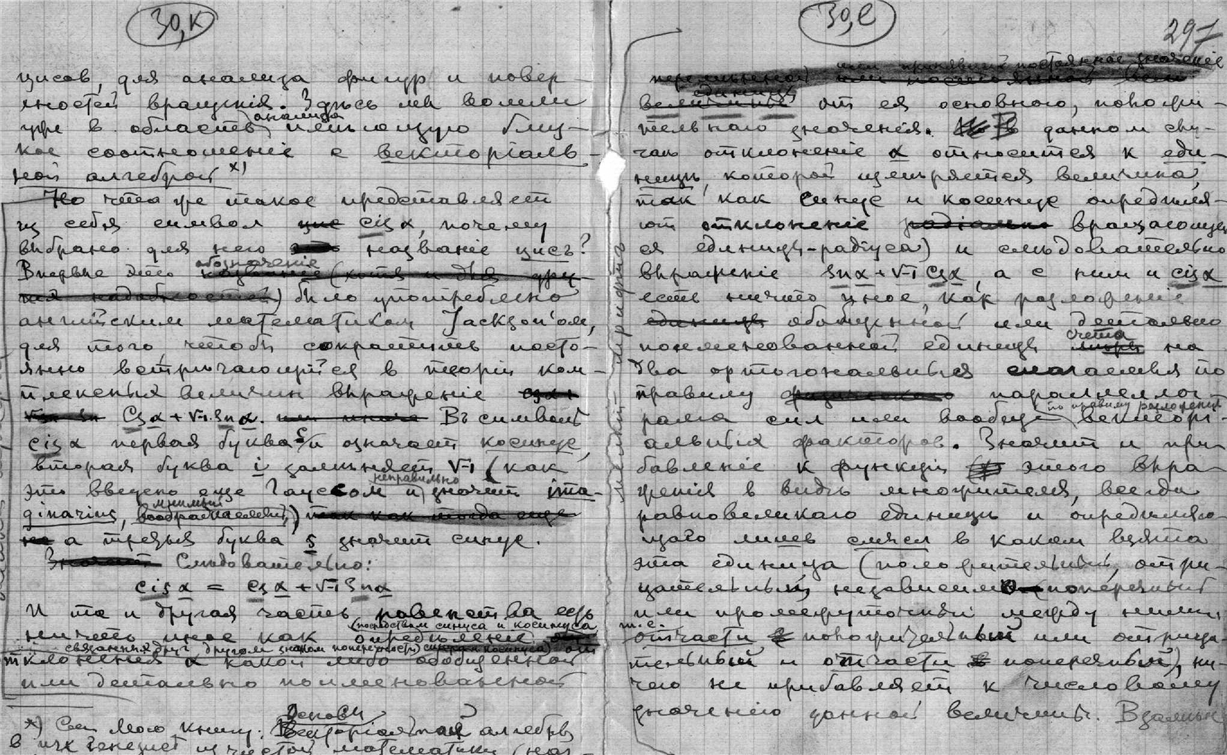 30,к
цисов, для анализа фигур и повер-
хностей вращенія. Здѣсь мы вошли
уже в область анализа, имѣющую близ-
кое соотношеніе с векторіаль-
ной алгеброй х)
Но что же такое представляет
из себя символ cis α, почему
выбрано для него названіе цисъ?
Впервые это обозначеніе
было употреблено
англійским математиком Jackson'ом,
для того, чтобы сократить посто-
янно встрѣчающееся в теоріи ком-
плексных величин выраженіе
Cs α + √-1 Sn α. Въ символѣ
cis α первая буква с и означает косинус,
вторая буква i замѣняет √-1 (как
это введено еще Гауссом и неправильно значит ima-
ginarius, мнимый)
а третья буква s значит синус.
Слѣдовательно:
cis α = cs α + √-1 Sn α
И та и другая часть равенства есть
ничто иное как опредѣленіе (посредством синуса и косинуса
связанных друг с другом знаком поперечности) от
клоненія α какой либо обобщенной
или детально поименованной
*) См. мою книгу. Основы алгебры
в их генезисѣ из чистой математики
30,е
297
единицы от ея основного, положи-
тельнаго значенія. В данном слу-
чаѣ отклоненіе α относится к еди-
ницѣ, которой измѣряется величина,
так как синус и косинус опредѣля-
ют отклоненіе вращающей-
ся единицы-радіуса) и слѣдовательно
выраженіе Sn α + √-1 Cs α, а с ним и cis α
есть ничто иное, как разложеніе
обобщенной или детально
поименованной единицы счета на
два ортогональныя слагаемыя по
правилу параллелог-
рама сил или вообще по правилу разложенія векторі-
альных факторов. Значит и при-
бавленіе к функціи этого выра-
женія в видѣ множителя, всегда
равновеликаго единицѣ и опредѣляю-
щаго лишь смысл в каком взята
эта единица (положительный, отри-
цательный, независимо поперечный
или промежуточный между ними,
т.е. отчасти положительный или отрица
тельный и отчасти поперечный), ни-
чего не прибавляет к числовому
значенію данной величины. Взамѣн